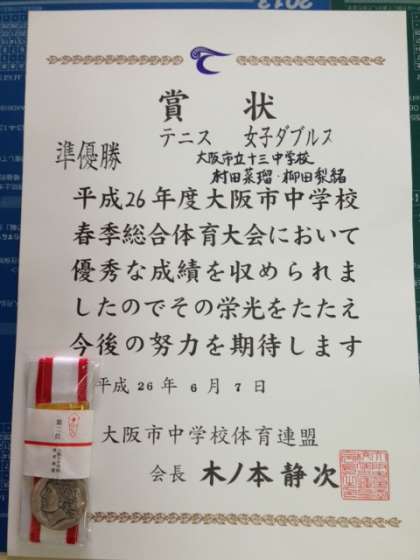 2013
賞状
テニス 女子ダブルス
準優勝
大阪市立十三中学校
村田菜瑠・柳田梨緒
平成26年度大阪市中学校
春季総合体育大会において
優秀な成績を収められま
したのでその栄光をたたえ
今後の努力を期待します
平成26年6月7日
大阪市中学校体育連盟
会長 木ノ本静次
第二位